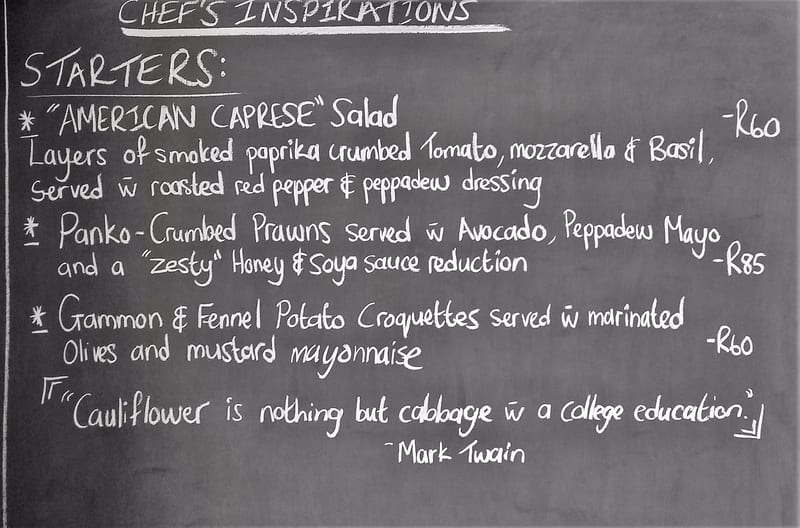 CHEF'S INSPIRATIONS
STARTERS:
* "AMERICAN CAPRESE" Salad -R60
Layers of smoked paprika crumbed Tomato, mozzarella & Basil,
served w̄ roasted red pepper & peppadew dressing
* Panko-Crumbed Prawns served w̄ Avocado, Peppadew Mayo
and a "Zesty" Honey & Soya sauce reduction -R85
* Gammon & Fennel Potato Croquettes served w̄ marinated
Olives and mustard mayonnaise -R60
"Cauliflower is nothing but cabbage w̄ a college education."
~Mark Twain